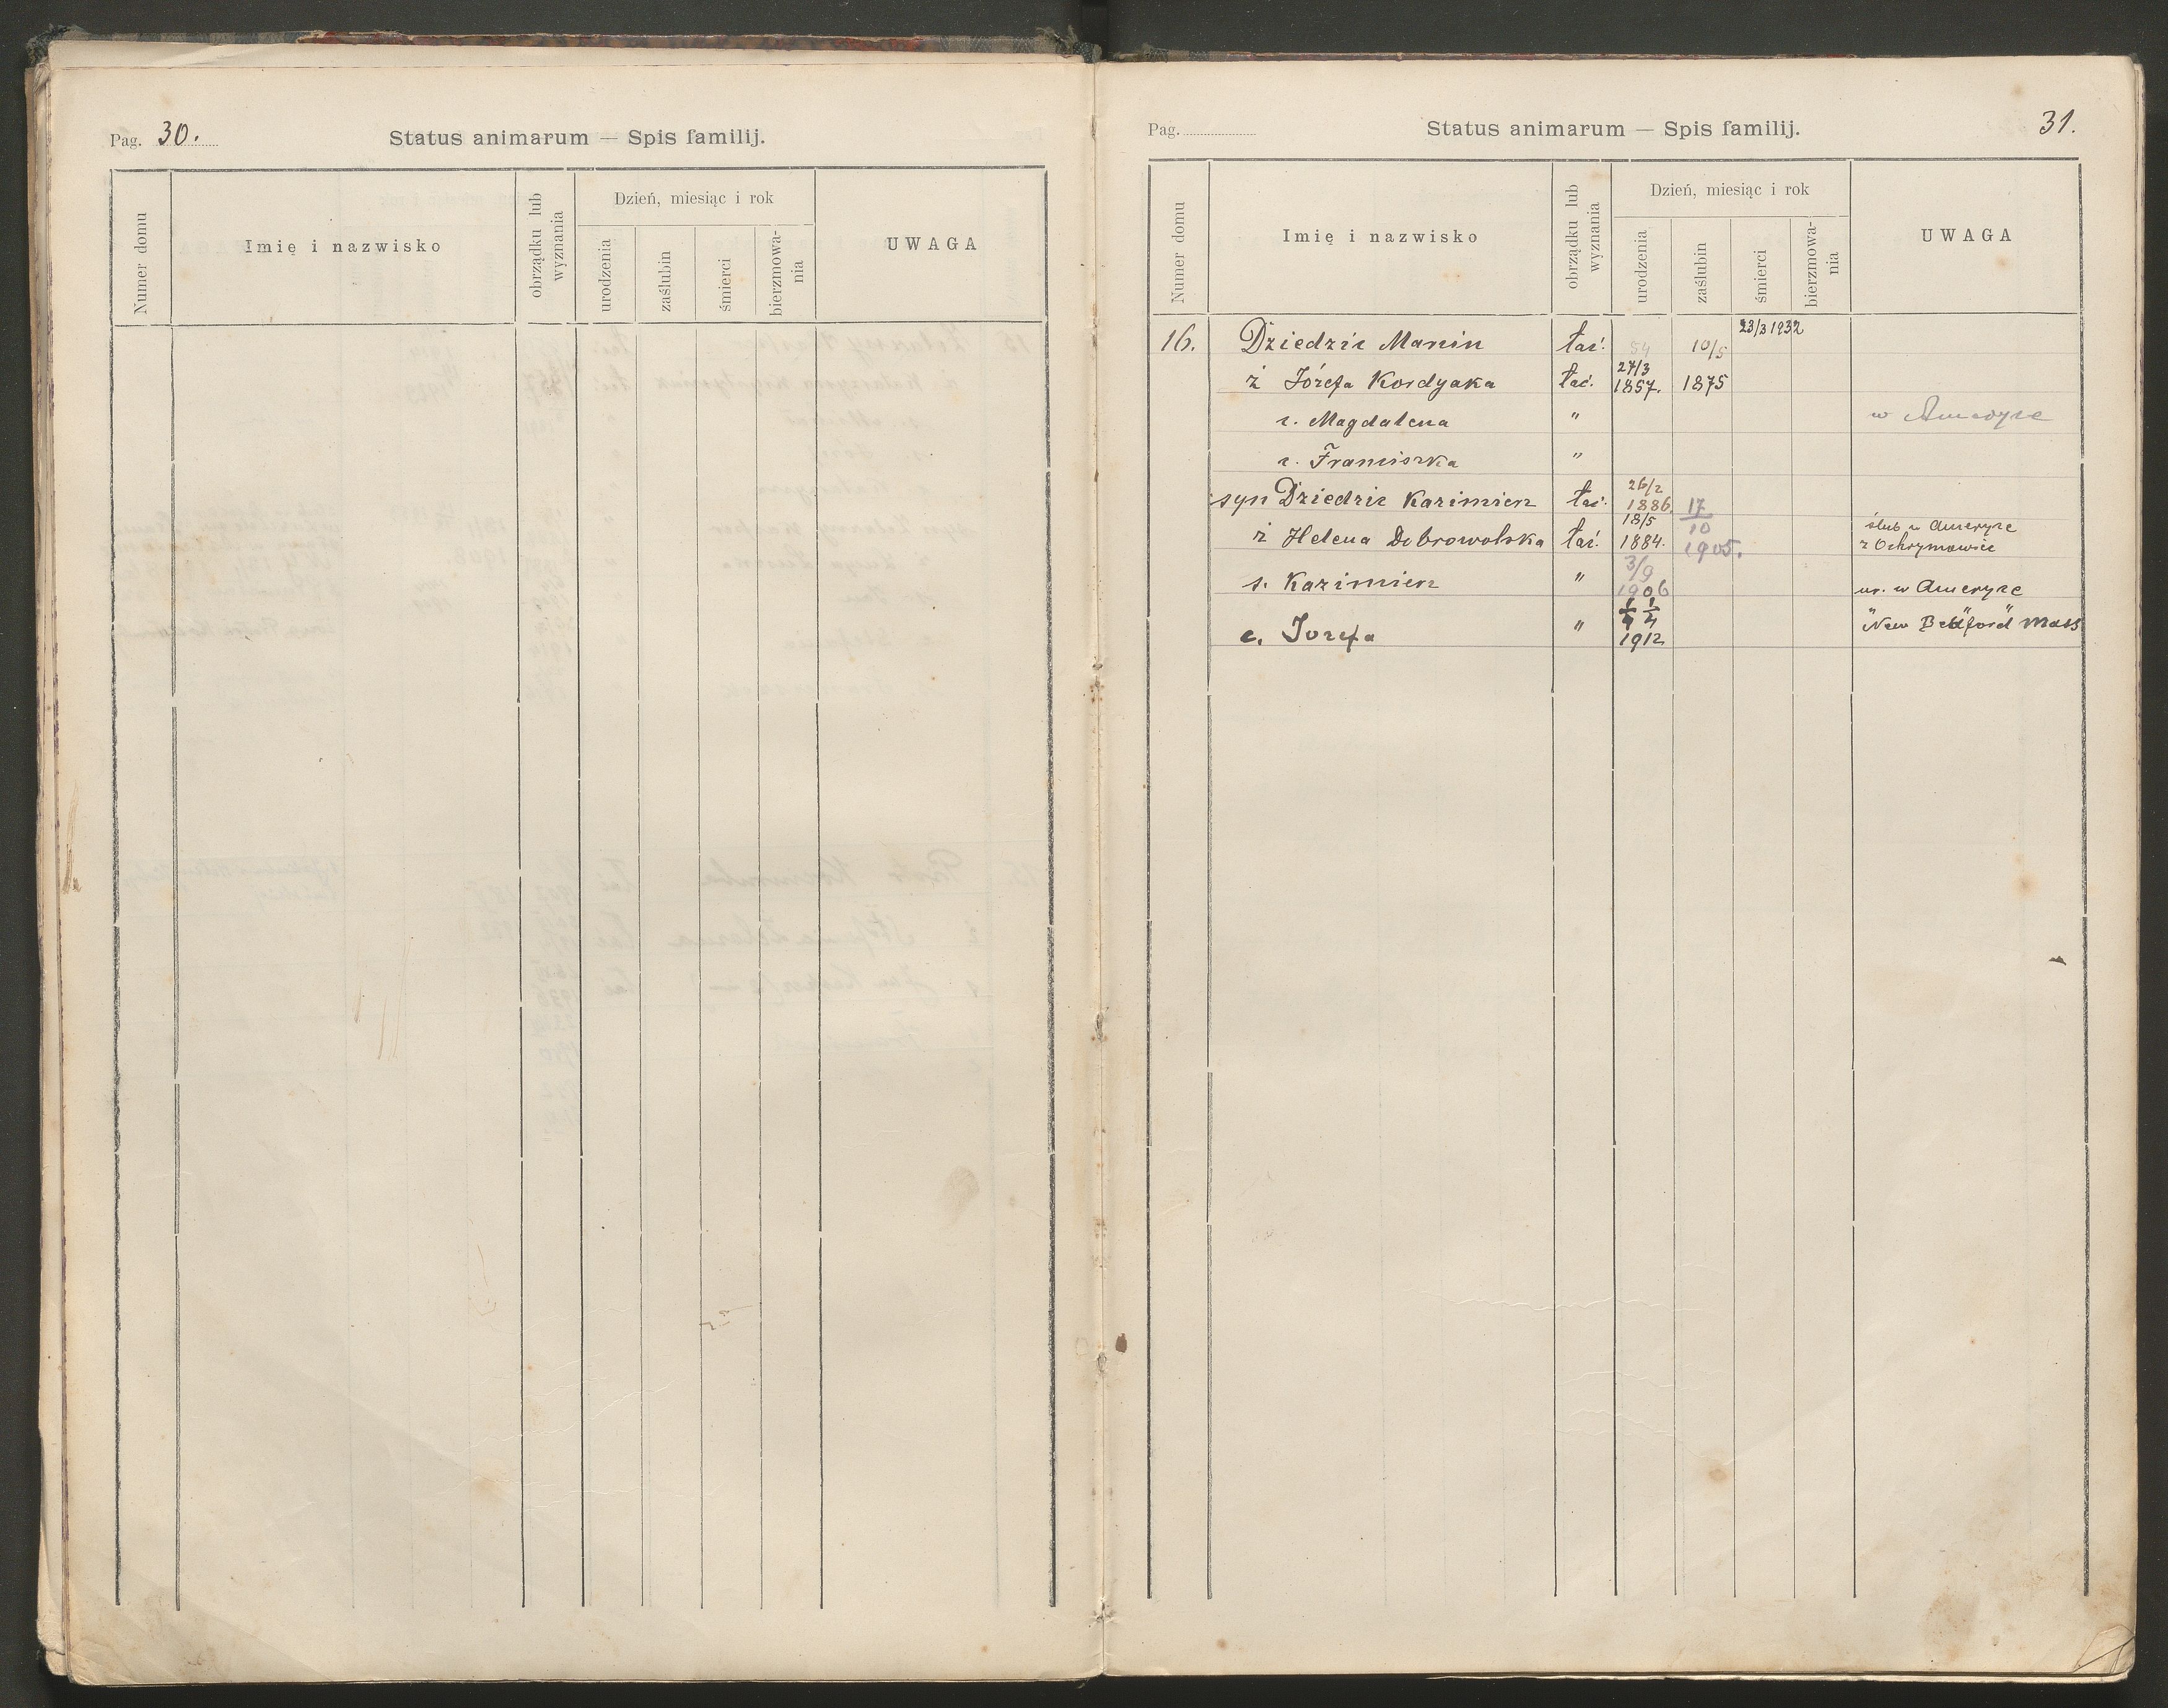 Pag. 30.
Status animarum — Spis familij.
Numer domu
Imię i nazwisko
obrządku lub wyznania
Dzień, miesiąc i rok
urodzenia
zaślubin
śmierci
bierzmowa-
nia
UWAGA
Pag.
Status animarum — Spis familij.
31.
Numer domu
Imię i nazwisko
obrządku lub wyznania
Dzień, miesiąc i rok
urodzenia
zaślubin
śmierci
bierzmowa-
nia
UWAGA
16. Dziedzic Marcin łać. 54 10/5 23/3 1932
ż Józefa Kordyaka łać. 27/3 1857. 1875
c. Magdalena " w Ameryce
c. Franciszka "
syn Dziedzic Kazimierz łać. 26/2 1886. 17/10
ż Helena Dobrowolska łać. 18/5 1884. 1905. ślub w Ameryce
z Ochrymowiec
s. Kazimierz " 3/9 1906 ur. w Ameryce
c. Jozefa " 1912 " " "
New Bedford Mass